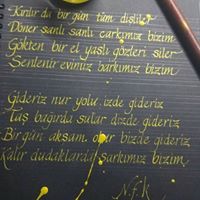 Kırılır da bir gün tüm dişliler
Döner şanlı şanlı çarkımız bizim
Gökten bir el yaşlı gözleri siler
Şenlenir evimiz barkımız bizim
Gideriz nur yolu izde gideriz
Taş bağırda sular dizde gideriz
Bir gün akşam olur bizde gideriz
Kalır dudaklarda şarkımız bizim
N.f.k